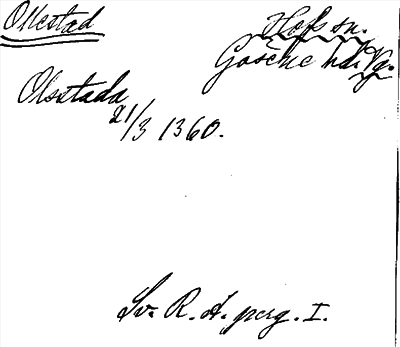 Ollestad
Hofs sn.
Gösene hd. Vg.
Olsstada
21/3 1360.
Sv. R. A. perg. I.